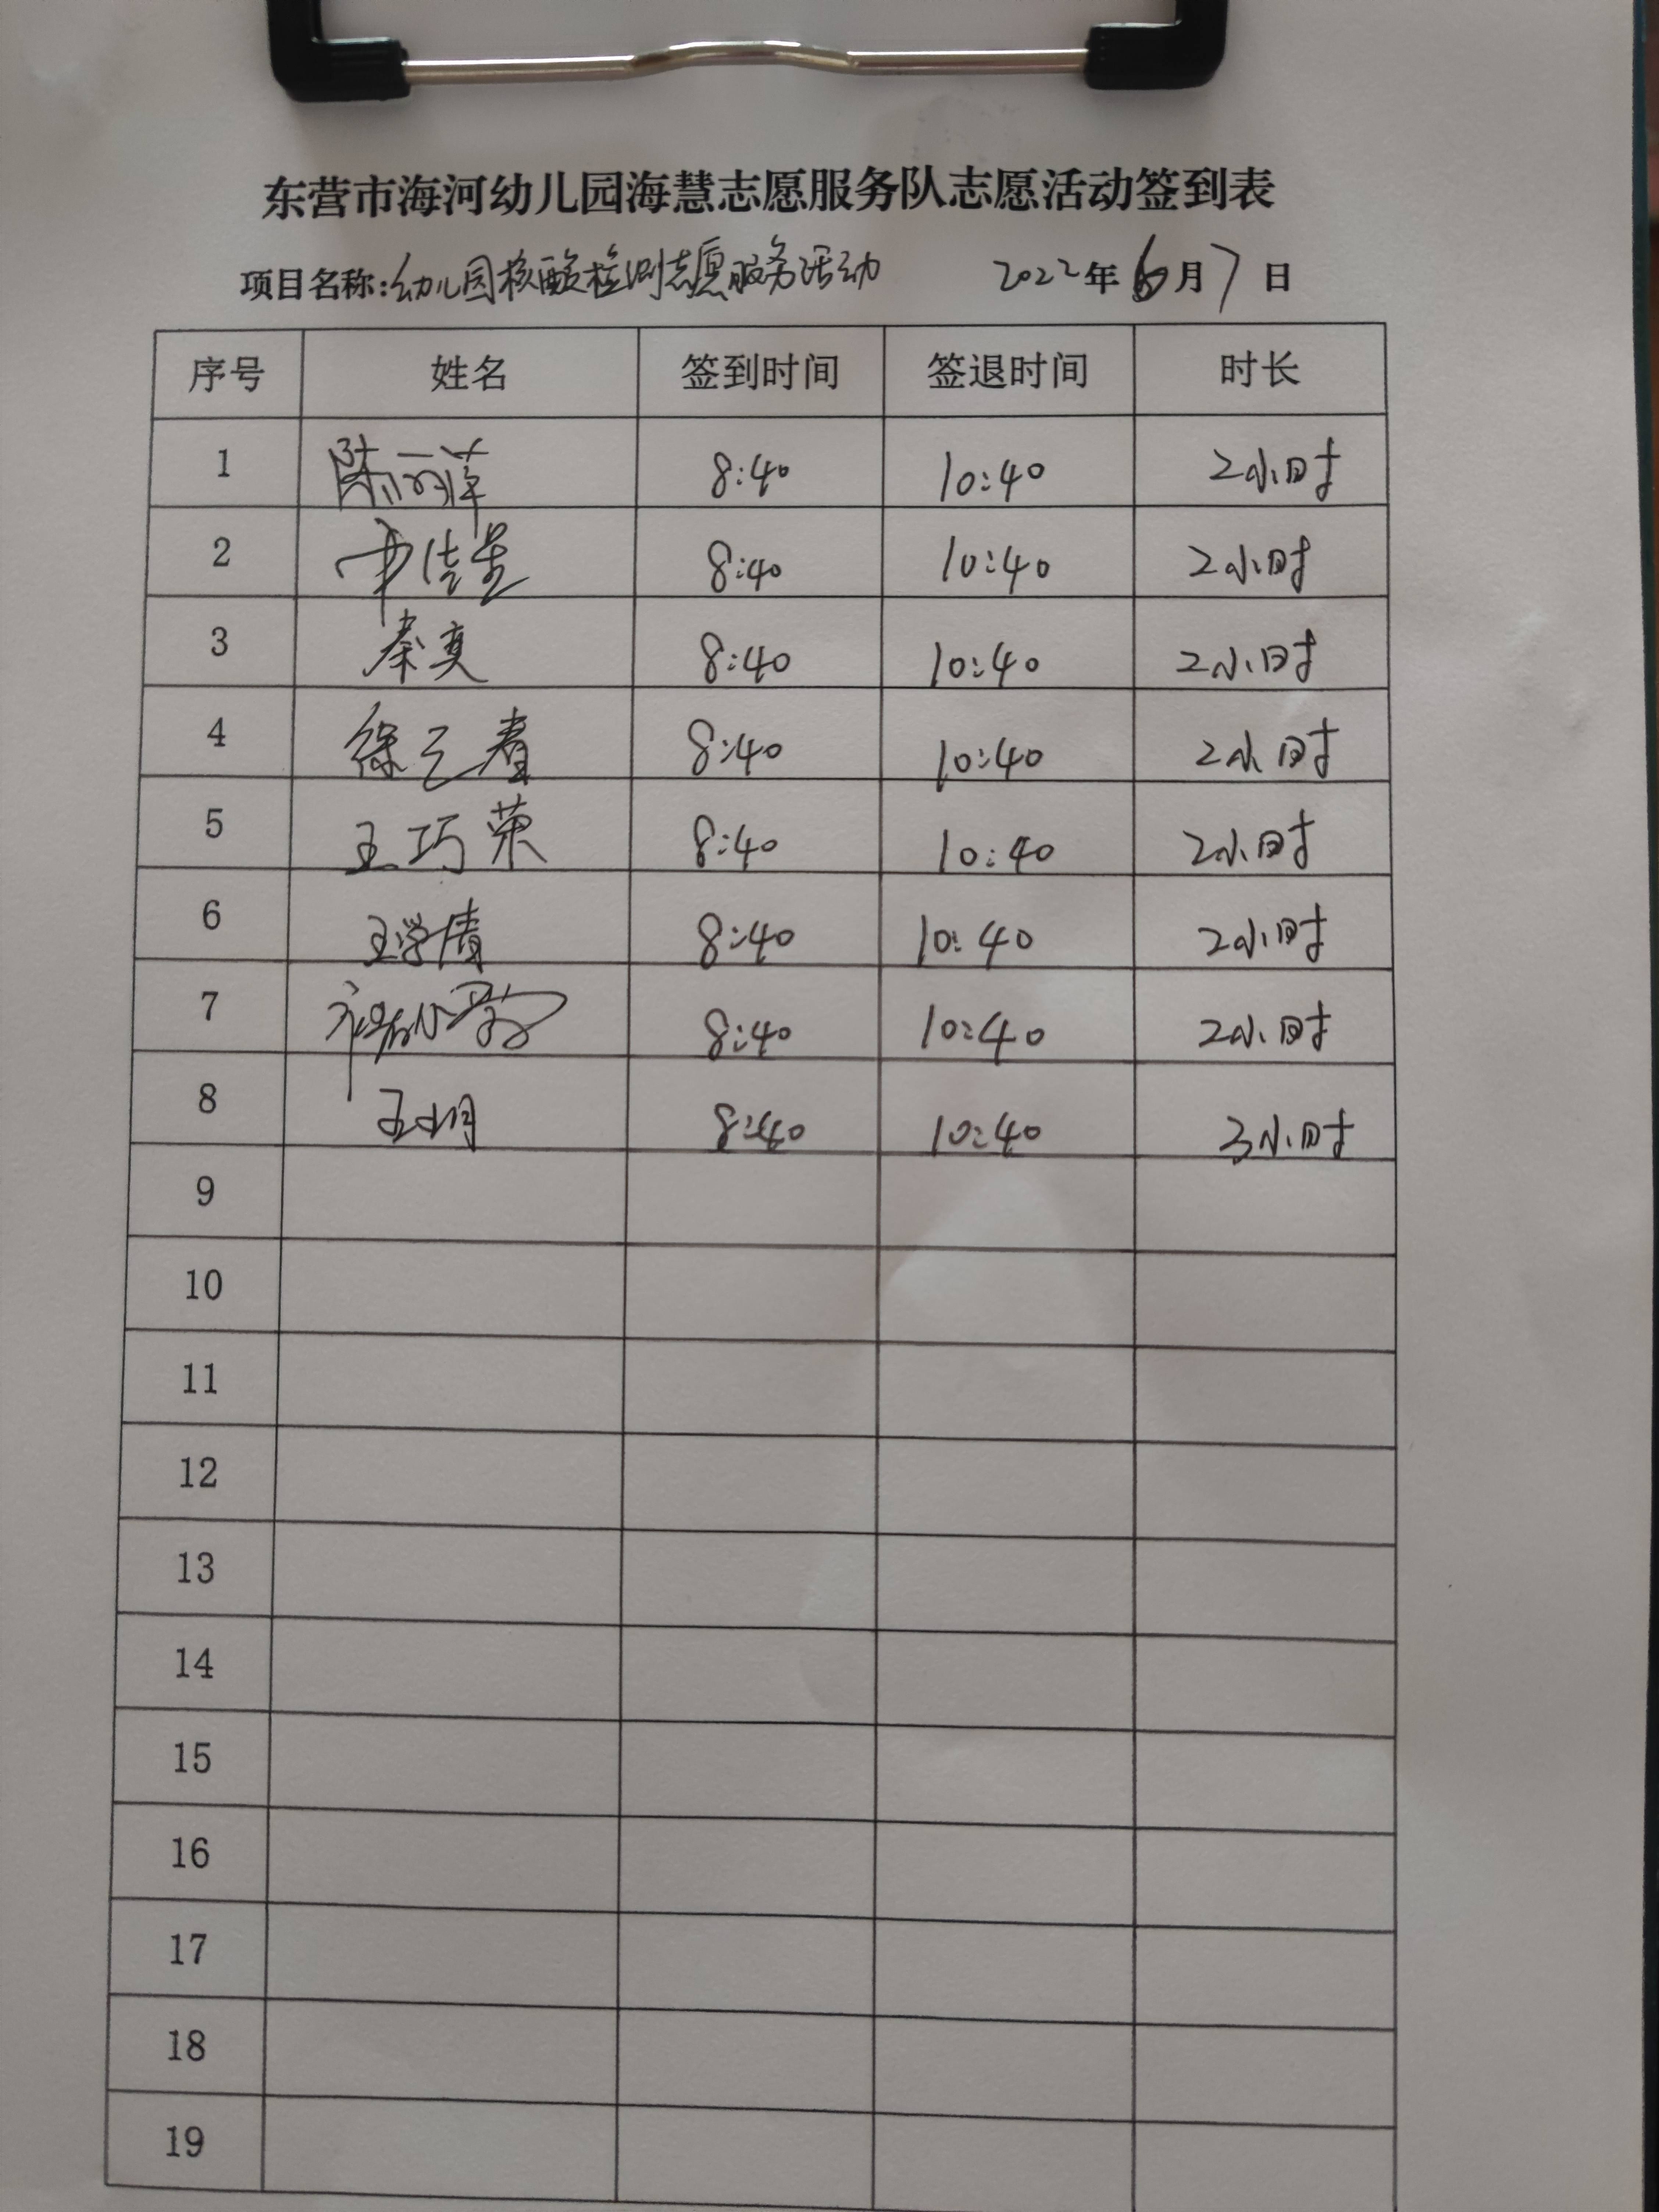 东营市海河幼儿园海慧志愿服务队志愿活动签到表
项目名称:幼儿园核酸检测志愿服务活动 2022年6月7日
序号 姓名 签到时间 签退时间 时长
1 陈丽萍 8:40 10:40 2小时
2 8:40 10:40 2小时
3 秦真 8:40 10:40 2小时
4 徐云春 8:40 10:40 2小时
5 王巧荣 8:40 10:40 2小时
6 王学清 8:40 10:40 2小时
7 8:40 10:40 2小时
8 8:40 10:40 3小时
9
10
11
12
13
14
15
16
17
18
19